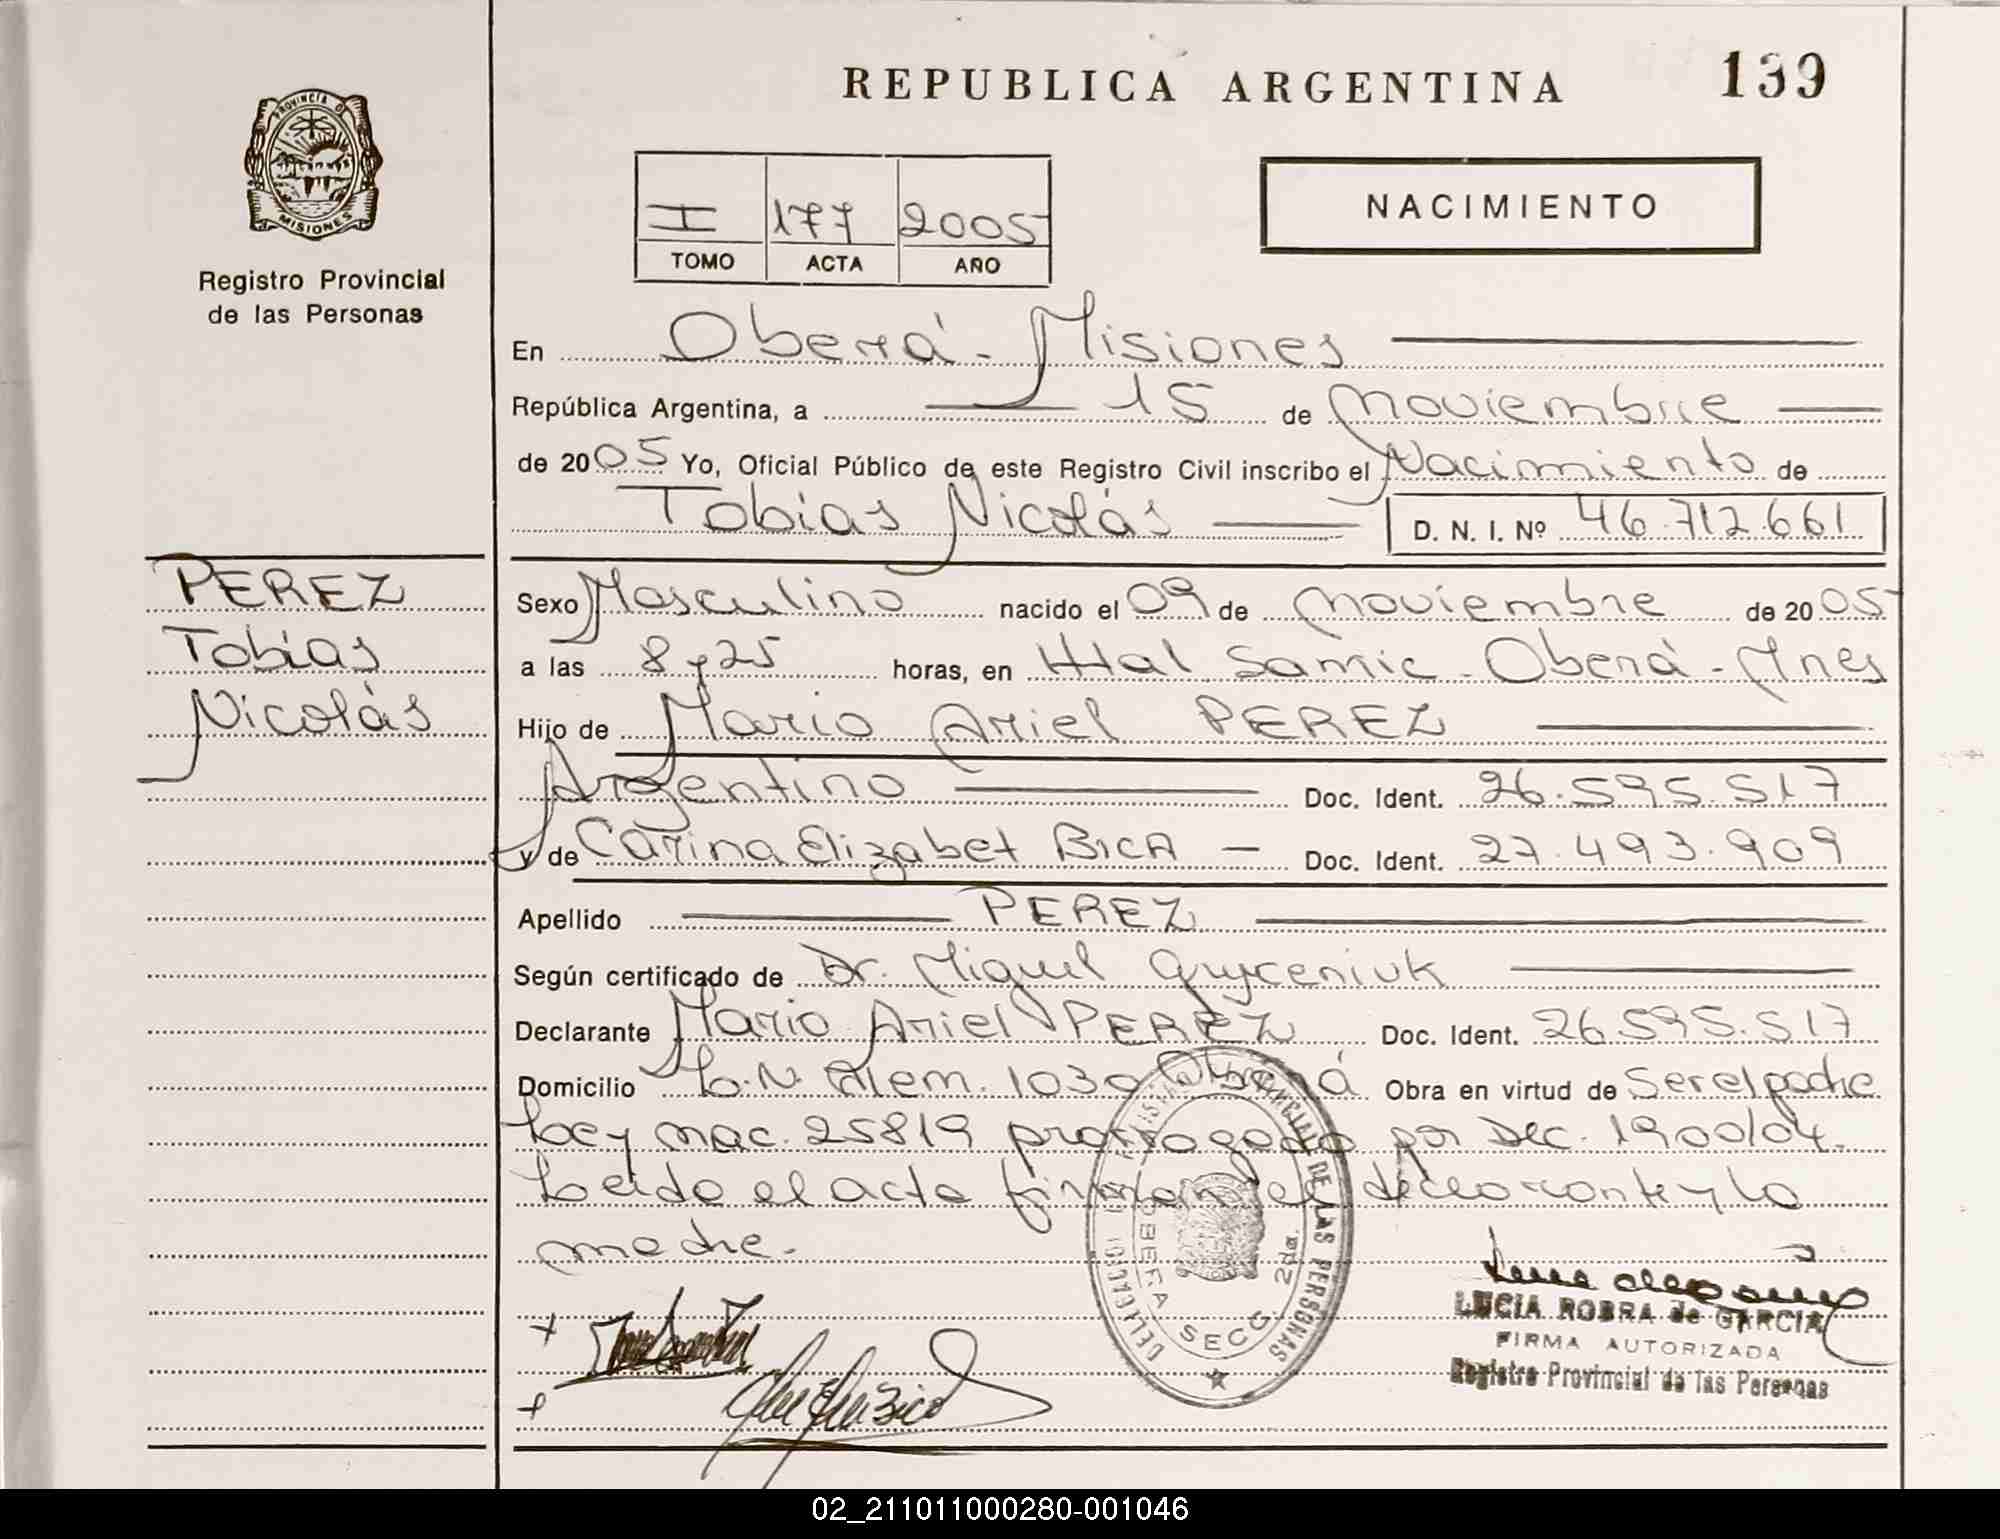 REPUBLICA ARGENTINA
139
PROVINCIA DE
MISIONES
Registro Provincial
de las Personas
I 177 2005
TOMO ACTA AÑO
NACIMIENTO
En Oberá - Misiones
República Argentina, a 15 de Noviembre
de 2005 Yo, Oficial Público de este Registro Civil inscribo el Nacimiento de
Tobias Nicolás D. N. I. Nº 46.712.661
PEREZ
Tobias
Nicolás
Sexo Masculino nacido el 09 de Noviembre de 2005
a las 8 y 25 horas, en Htal Samic - Oberá - Mnes
Hijo de Mario Ariel PEREZ
Argentino Doc. Ident. 26.595.517
y de Carina Elizabet BICA - Doc. Ident. 27.493.909
Apellido PEREZ
Según certificado de Dr. Miguel
Declarante Mario Ariel PEREZ Doc. Ident. 26.595.517
Domicilio L.N. Alem. 1030 Oberá Obra en virtud de Ser el padre
Ley nac. 25819 prorrogada por Dec. 1900/04.
Leida el acta firman el declarante y la
madre.
DELEGACION REGISTRO PROVINCIAL DE LAS PERSONAS
OBERA SECC. 2da.
LUCIA ROBRA de GARCIA
FIRMA AUTORIZADA
Registro Provincial de las Personas
02_211011000280-001046